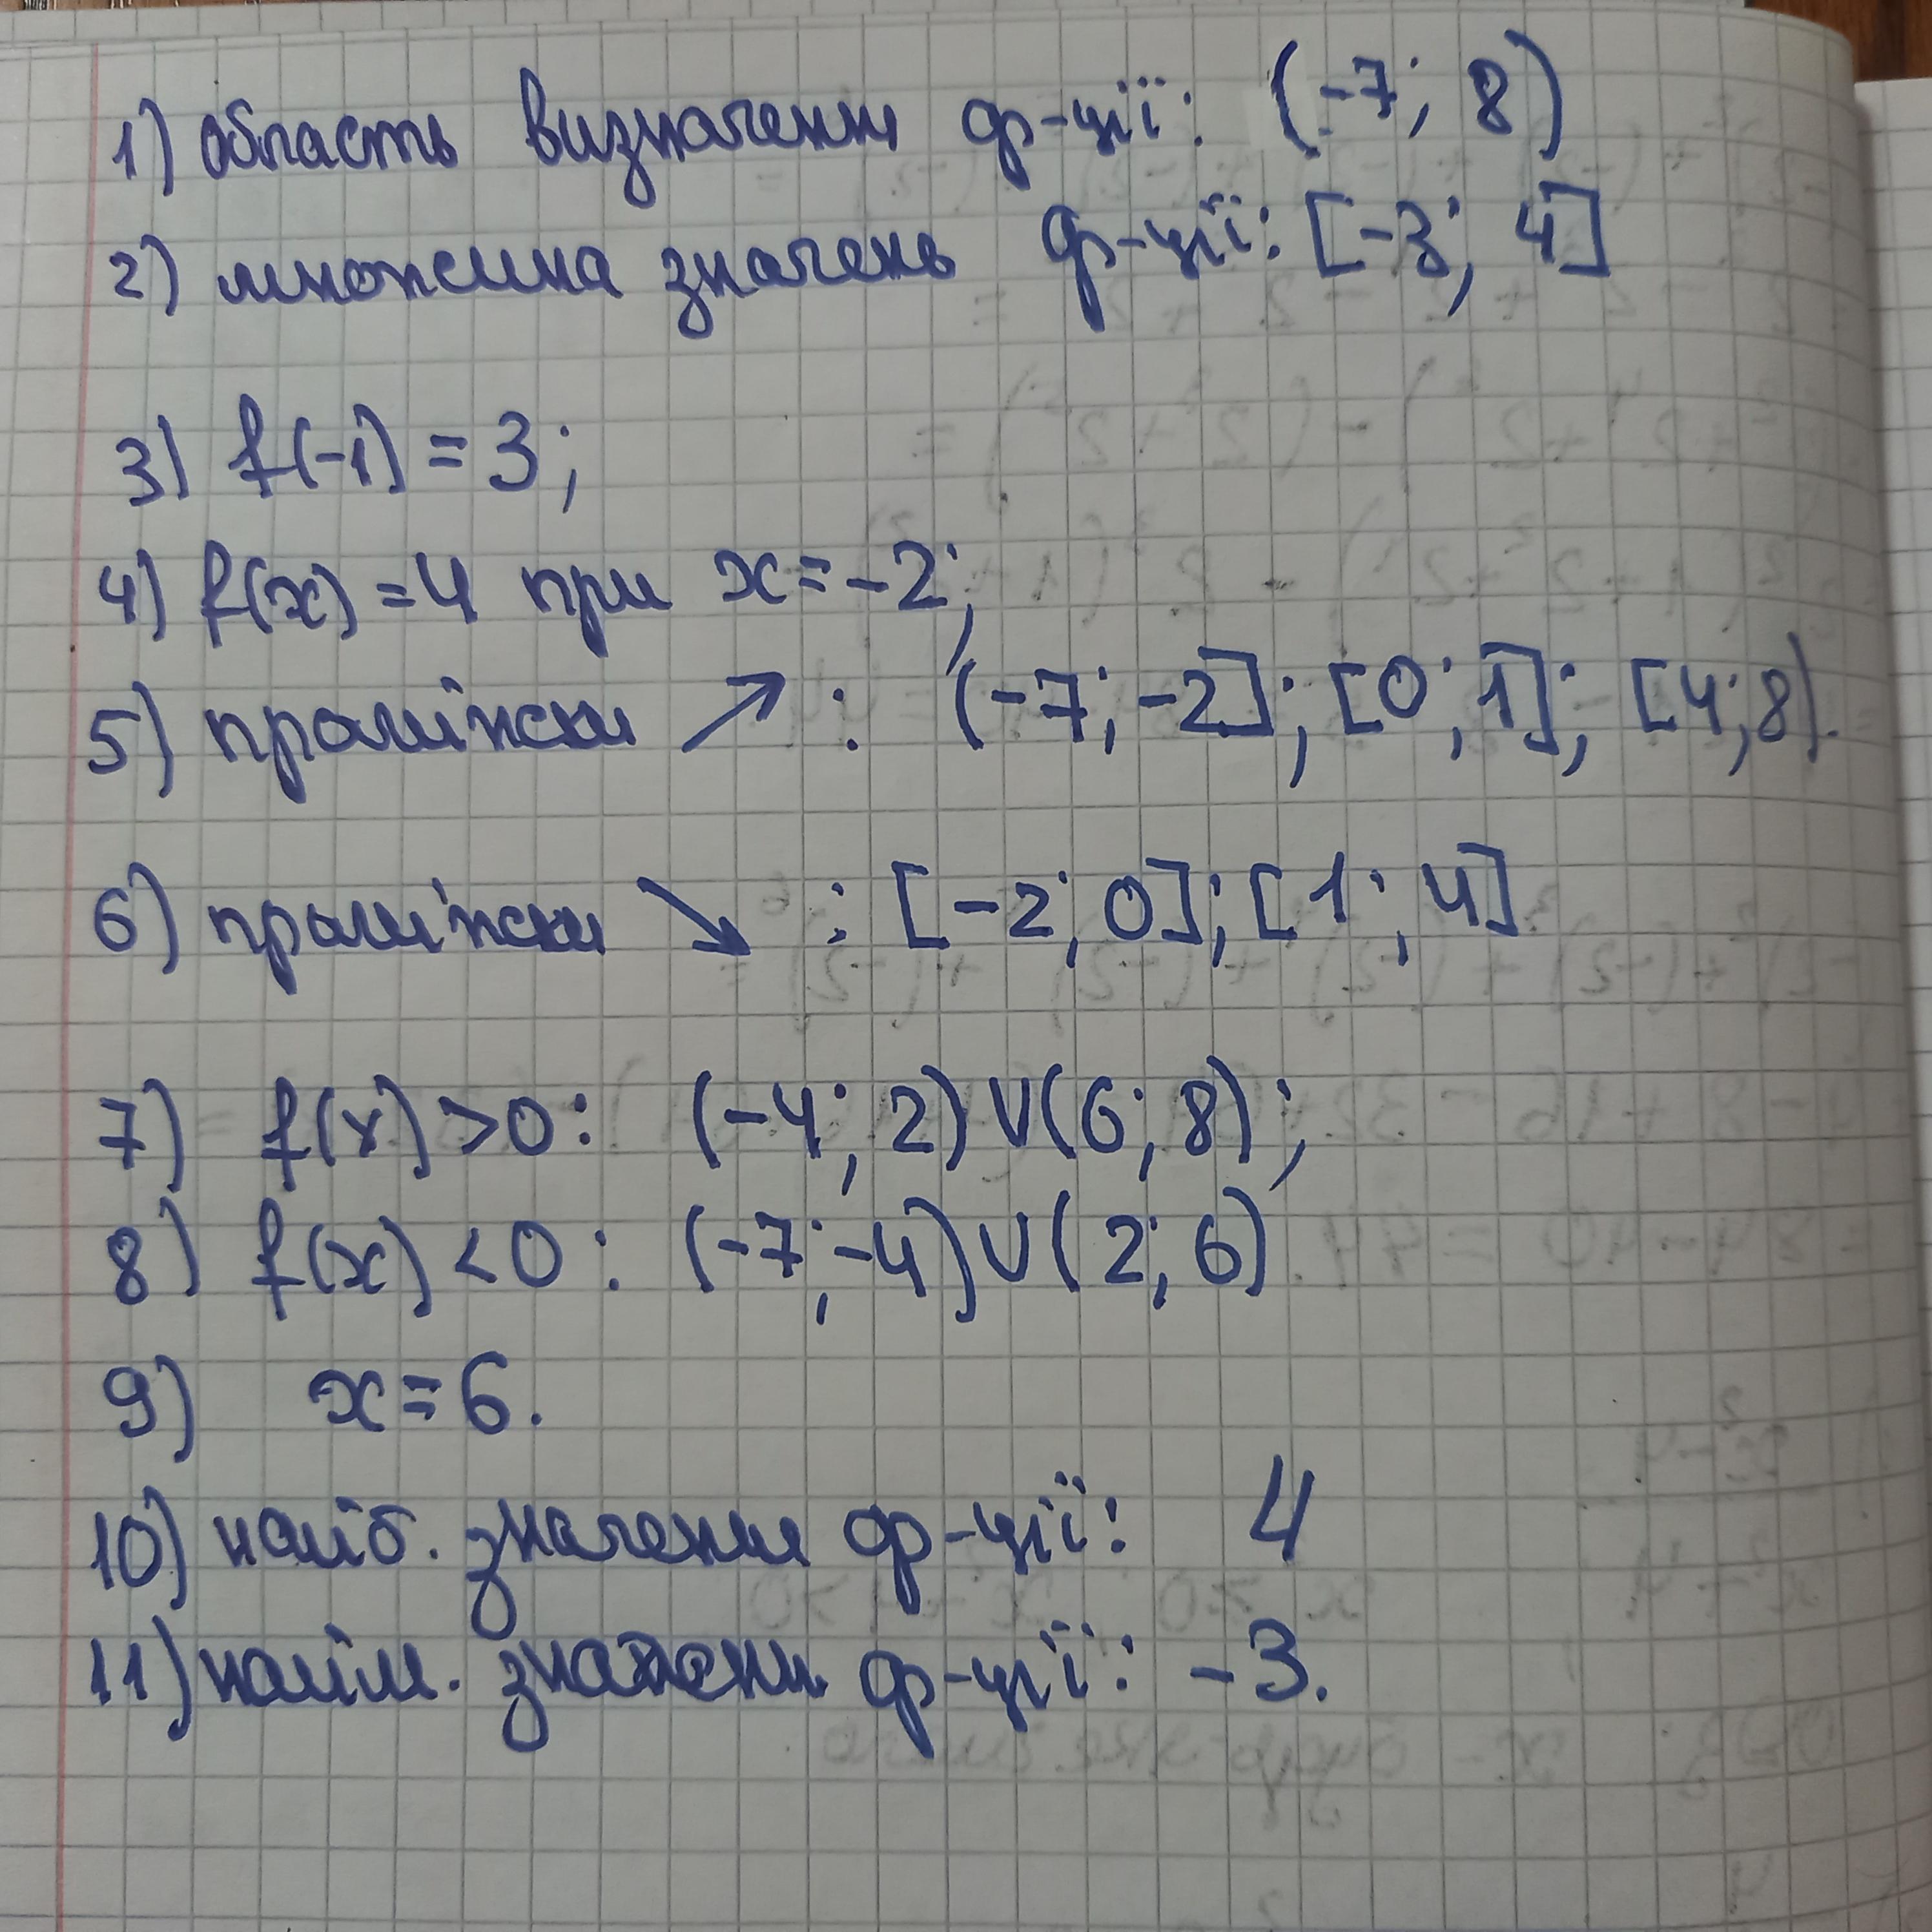 1) область визначення ф-ції: (-7; 8)
2) множина значень ф-ції: [-3; 4]
3) f(-1) = 3;
4) f(x) = 4 при x = -2;
5) проміжки ↗ : (-7; -2]; [0; 1]; [4; 8).
6) проміжки ↘ : [-2; 0]; [1; 4]
7) f(x) > 0: (-4; 2) ∪ (6; 8);
8) f(x) < 0 : (-7; -4) ∪ (2; 6)
9) x = 6.
10) найб. значення ф-ції: 4
11) найм. значення ф-ції: -3.